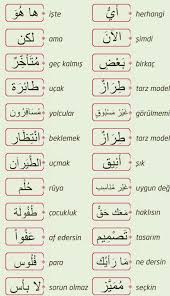 ها هُوَ işte أيُّ herhangi
لكن ama الآن şimdi
مُتَأَخِّرٌ geç kalmış بَعْض birkaç
طائِرَة uçak طِرَازٌ tarz model
مُسَافِرُون yolcular غَيْر مَسْبُوق görülmemi
انْتِظَار beklemek طِرَازٌ tarz model
الطَّيَرَان uçmak أَنِيق şık
حُلْم rüya غَيْر مُنَاسِب uygun değ
طُفُولَة çocukluk مَعَكَ حَقّ haklısın
عَفْواً af edersin تَصْمِيم tasarım
فُلُوس para مَا رَأْيُكَ ne dersin
لا بَأْس sorun olmaz مُمَيَّز seçkin